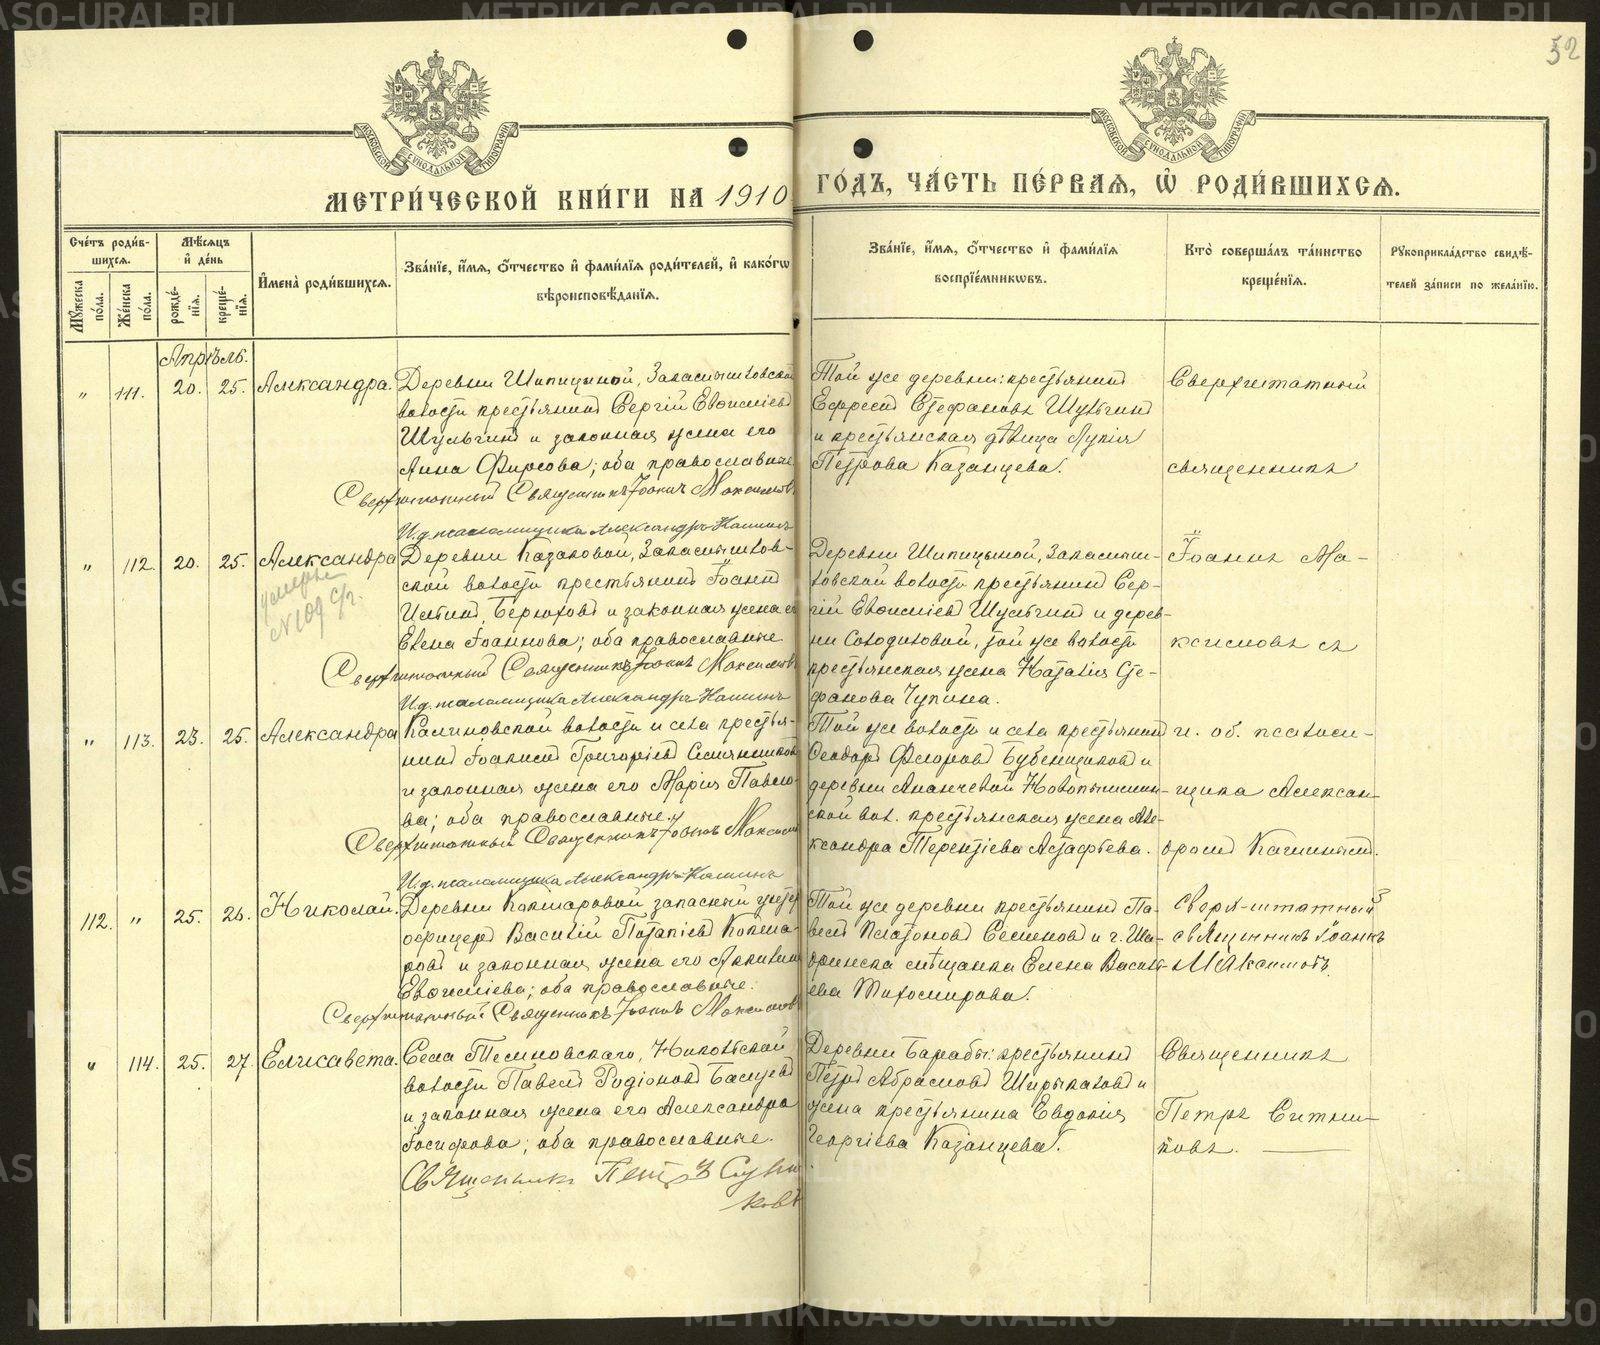 52
МОСКОВСКОЙ СѴНОДАЛЬНОЙ ТИПОГРАФІИ
МОСКОВСКОЙ СѴНОДАЛЬНОЙ ТИПОГРАФІИ
МЕТРИ́ЧЕСКОЙ КНИ́ГИ НА 1910 ГО́ДЪ, ЧА́СТЬ ПЕ́РВАЯ, Ѡ҆ РОДИ́ВШИХСЯ.
Сче́тъ роди́в-
шихся.
Мꙋ́жеска по́ла.
Же́нска по́ла.
Мѣ́сяцъ
и҆ де́нь
рожде́-
нїя.
креще́-
нїя.
И҆мена̀ роди́вшихся.
Зва́нїе, и҆́мя, ѻ҆́тчество и҆ фами́лїя роди́телей, и҆ како́гѡ
вѣроисповѣ́данїя.
Зва́нїе, и҆́мя, ѻ҆́тчество и҆ фами́лїя
воспрїе́мникѡвъ.
Кто̀ соверша́лъ та́инство
креще́нїя.
Рꙋкоприкла́дство свидѣ́-
телей за́писи по жела́нїю.
Апрѣль.
" 111. 20. 25. Александра.
Деревни Шипицыной,
волости крестьянинъ Сергій Евѳиміевъ
Шульгинъ и законная жена его
Анна Фирсова; оба православные
Сверхштатный Священникъ Іоаннъ Максимовъ
И.д. псаломщика Александръ Кашинъ
Той же деревни: крестьянинъ
Ефремъ Стефановъ Шульгинъ
и крестьянская дѣвица Лукія
Петрова Казанцева.
Сверхштатный
священникъ
" 112. 20. 25. Александра
умерла
№109 с/г.
Деревни Казаковой,
ской волости крестьянинъ Іоаннъ
и законная жена его
Елена Іоаннова; оба православные
Сверхштатный Священникъ Іоаннъ Максимовъ
И.д. псаломщика Александръ Кашинъ
Деревни Шипицыной,
волости крестьянинъ Сер-
гій Евѳиміевъ Шульгинъ и дерев-
ни Солодиловой, той же волости
крестьянская жена Наталія Сте-
фанова Чупина.
Іоаннъ Ма-
ксимовъ съ
" 113. 23. 25. Александра
Калиновской волости и села крестья-
нинъ Іоаннъ Григорьевъ
и законная жена его Марія Павло-
ва; оба православные.
Сверхштатный Священникъ Іоаннъ Максимовъ
И.д. псаломщика Александръ Кашинъ
Той же волости и села крестьянинъ
Ѳеодоръ Флоровъ Бубенщиковъ и
деревни Ананьевой Новопышмин-
ской вол. крестьянская жена Але-
ксандра Терентіева Астафьева.
и. об. псалом-
щика Алексан-
дромъ Кашинымъ.
112. " 25. 26. Николай.
Деревни Кокшаровой запасный унтеръ
офицеръ Василій Потапіевъ Кокша-
ровъ и законная жена его
Евѳиміева; оба православные.
Сверхштатный Священникъ Іоаннъ Максимовъ
Той же деревни крестьянинъ Па-
велъ Платоновъ Семеновъ и г. Ша-
дринска мѣщанка Елена Василь-
ева Тихомирова.
Сверхъ-штатный
священникъ Іоаннъ
Максимовъ.
" 114. 25. 27. Елисавета.
Села Темновскаго, Никольской
волости Павелъ Родіоновъ
и законная жена его Александра
Іосифова; оба православные.
Священникъ Петръ Ситни-
ковъ
Деревни Барабы: крестьянинъ
Петръ Абрамовъ Ширыкаловъ и
жена крестьянина Евдокія
Георгіева Казанцева.
Священникъ
Петръ Ситни-
ковъ.
METRIKI.GASO-URAL.RU